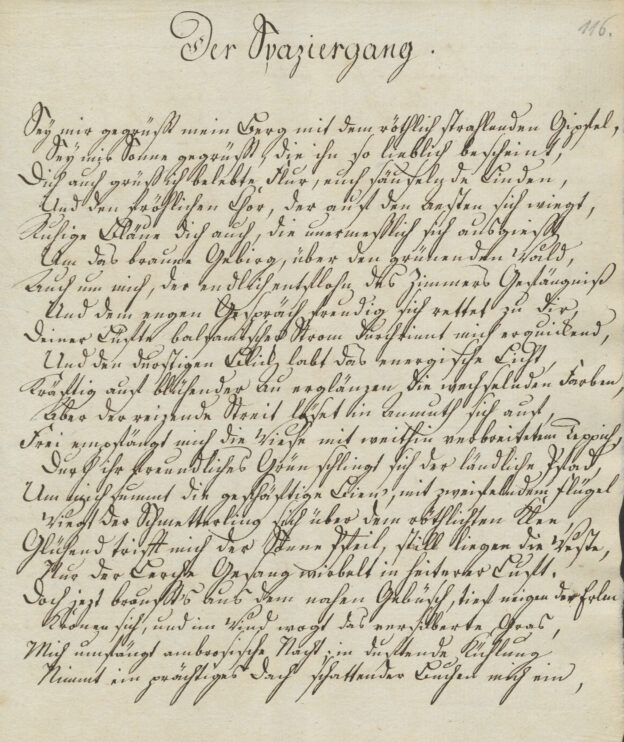 116.
Der Spaziergang.
Sey mir gegrüßt mein Berg mit dem röthlich strahlenden Gipfel,
Sey mir Sonne gegrüßt, die ihn so lieblich bescheint,
Dich auch grüß ich belebte Flur, euch säuselnde Linden,
Und den fröhlichen Chor, der auf den Aesten sich wiegt,
Ruhige Bläue dich auch, die unermeßlich sich ausgießt
Um das braune Gebirg, über den grünenden Wald,
Auch um mich, der endlich entflohn des Zimmers Gefängniß
Und dem engen Gespräch freudig sich rettet zu dir,
Deiner Lüfte balsamischer Strom durchrinnt mich erquickend,
Und den durstigen Blick labt das energische Licht,
Kräftig auf blühender Au erglänzen die wechselnden Farben,
Aber der reizende Streit löset in Anmuth sich auf,
Frei empfängt mich die Wiese mit weithin verbreitetem Teppich,
Durch ihr freundliches Grün schlingt sich der ländliche Pfad,
Um mich summt die geschäftige Bien, mit zweifelndem Flügel
Wiegt der Schmetterling sich über dem röthlichten Klee,
Glühend trifft mich der Sonne Pfeil, still liegen die Weste,
Nur der Lerche Gesang wirbelt in heiterer Luft.
Doch jezt braußt's aus dem nahen Gebüsch, tief neigen der Erlen
Kronen sich, und im Wind wogt das versilberte Gras,
Mich umfängt ambrosische Nacht; in duftende Kühlung
Nimmt ein prächtiges Dach schattender Buchen mich ein,